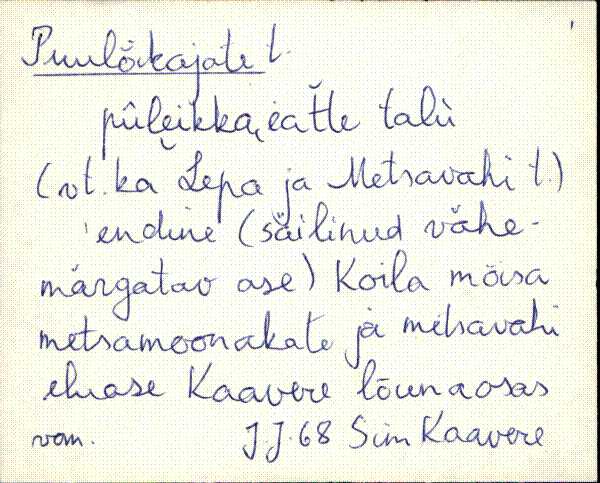 Puulõikajate t.
pūleikkajeaťťe talù
(vt. ka Lepa ja Metsavahi t.)
endine (säilinud vähe-
märgatav ase) Koila mõisa
metsamoonakate ja metsavahi
eluase Kaavere lõunaosas
van. JJ. 68 Sim Kaavere